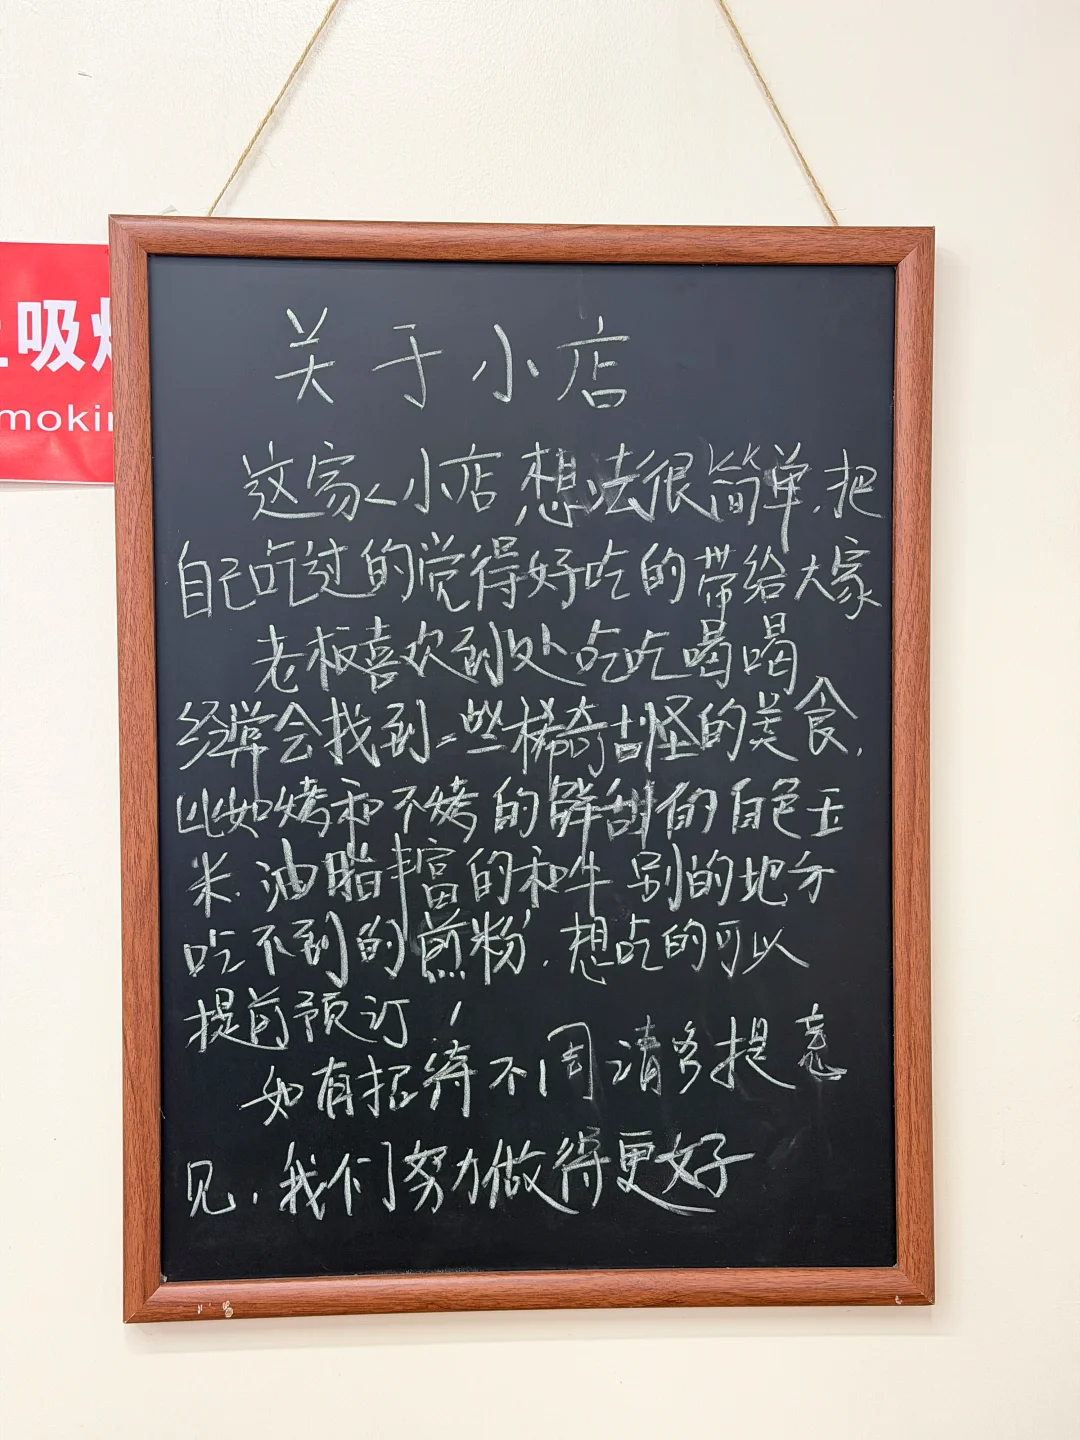 关于小店
这家小店想法很简单.把
自己吃过的觉得好吃的带给大家
老板喜欢到处吃吃喝喝
经常会找到一些稀奇古怪的美食,
比如烤和不烤的鲜刮的白色玉
米.油脂丰富的和牛别的地方
吃不到的煎粉.想吃的可以
提前预订!
如有招待不周请多提意
见.我们努力做得更好
吸
mokin